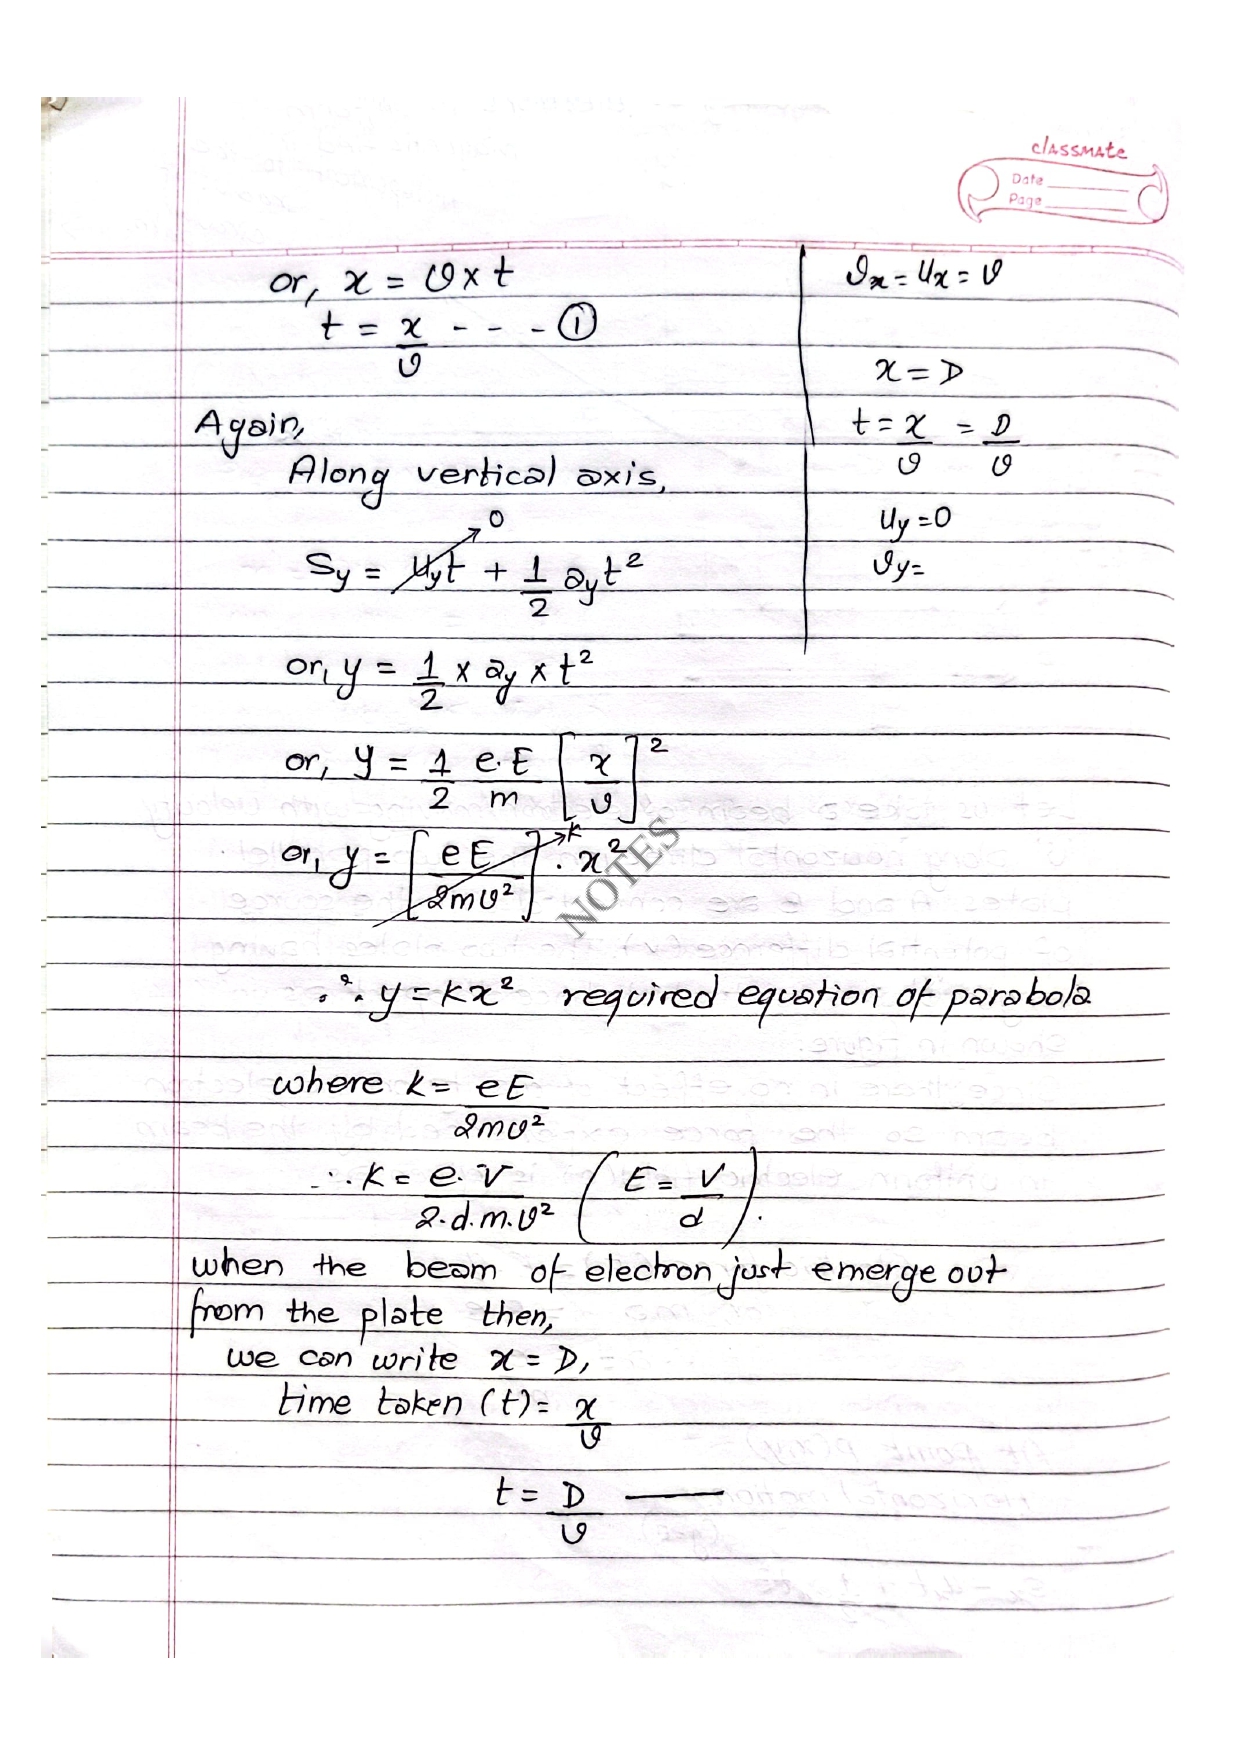 classmate
Date
Page
or, x = v × t
t = x/v - - - ①
Again,
Along vertical axis,
Sy = uyt → 0 + 1/2 ayt²
or, y = 1/2 × ay × t²
or, y = 1/2 e.E/m [x/v]²
or, y = [eE/2mv²] → k . x²
∴ y = kx² required equation of parabola
where k = eE/2mv²
∴ k = e.V/2.d.m.v² (E = V/d).
when the beam of electron just emerge out
from the plate then,
we can write x = D,
time taken (t) = x/v
t = D/v ———
vx = ux = v
x = D
t = x/v = D/v
uy = 0
vy =
NOTES